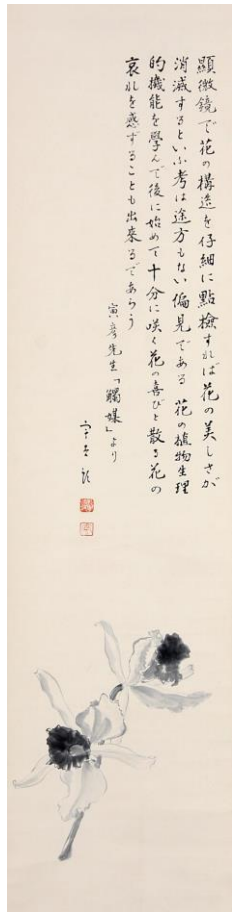 顯微鏡で花の構造を仔細に點檢すれば花の美しさが
消滅するといふ考は途方もない偏見である 花の植物生理
的機能を學んで後に始めて十分に咲く花の喜びと散る花の
哀れを感ずることも出來るであらう
寅彦先生「觸媒」より
宇吉郎